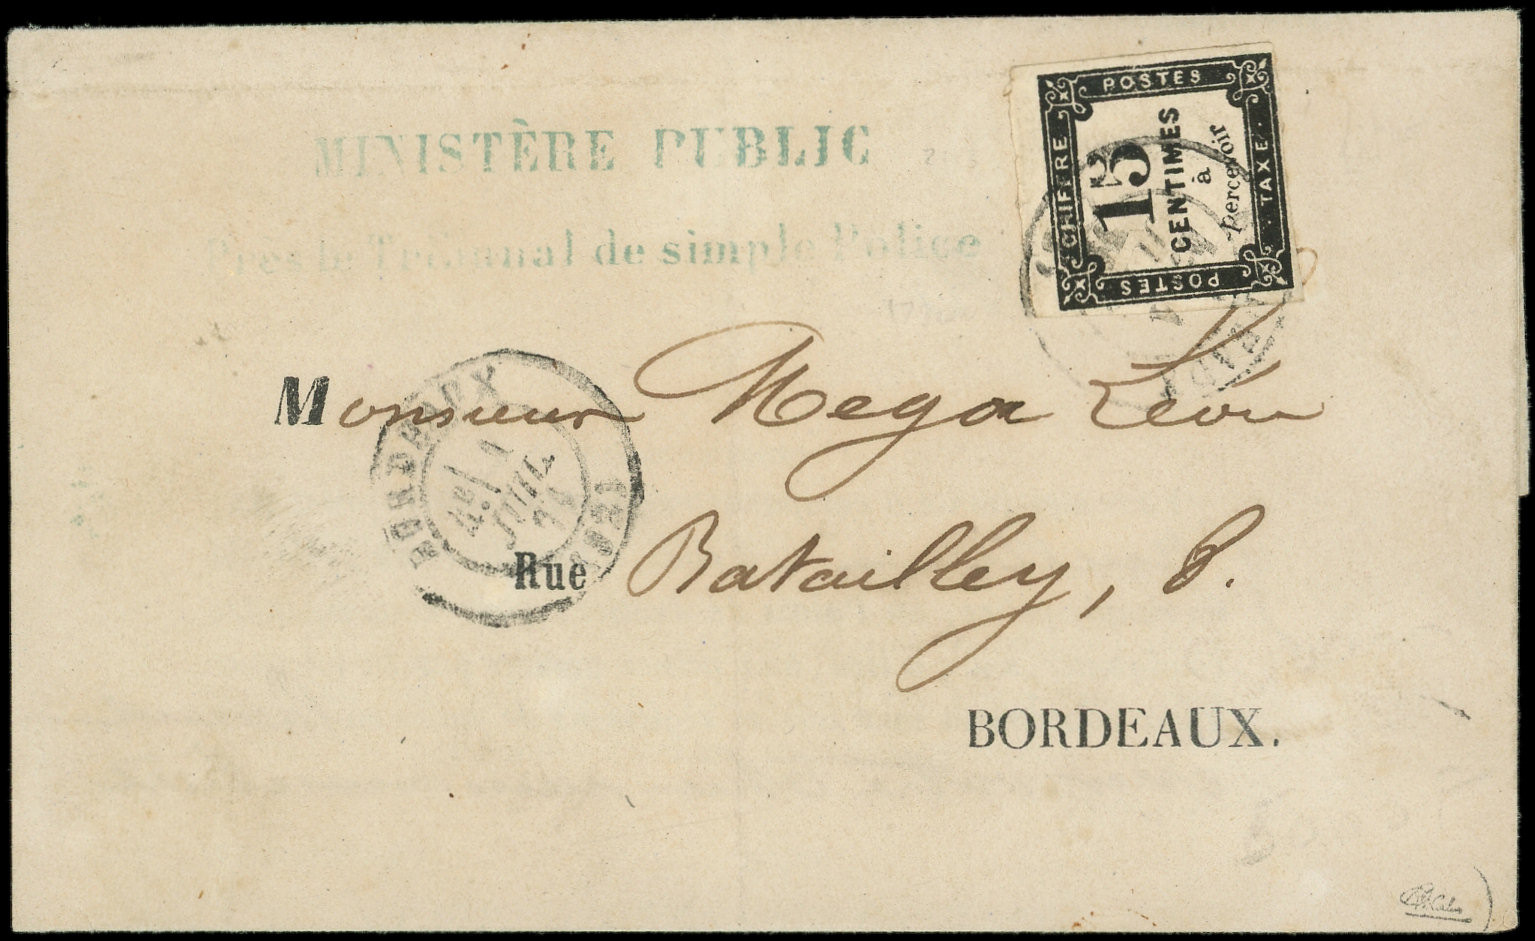 MINISTÈRE PUBLIC
Près le Tribunal de simple Police
POSTES
CHIFFRE
15
CENTIMES
à
percevoir
TAXE
POSTES
Monsieur Mega Léon
BORDEAUX
JUIL.
Rue Batailley, 8.
BORDEAUX.